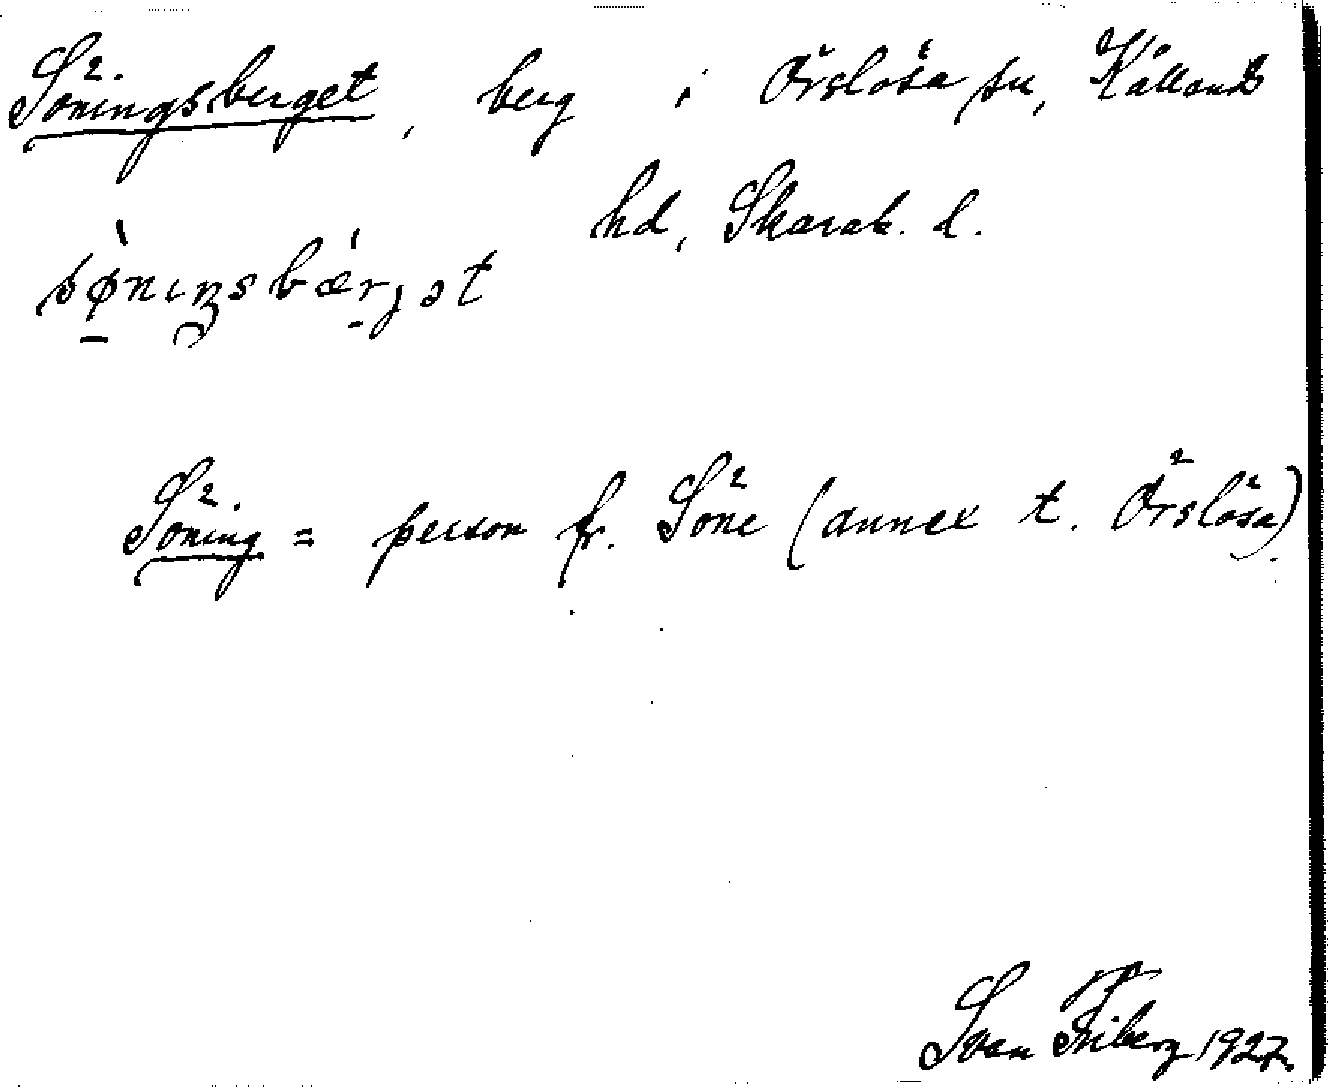 Söningsberget, berg i Örslösa sn, Kållands
hd, Skarab. l.
sø̀nıŋsbǽrjət
Söning = person fr. Söne (annex t. Örslösa)
Sven Friberg 1927.